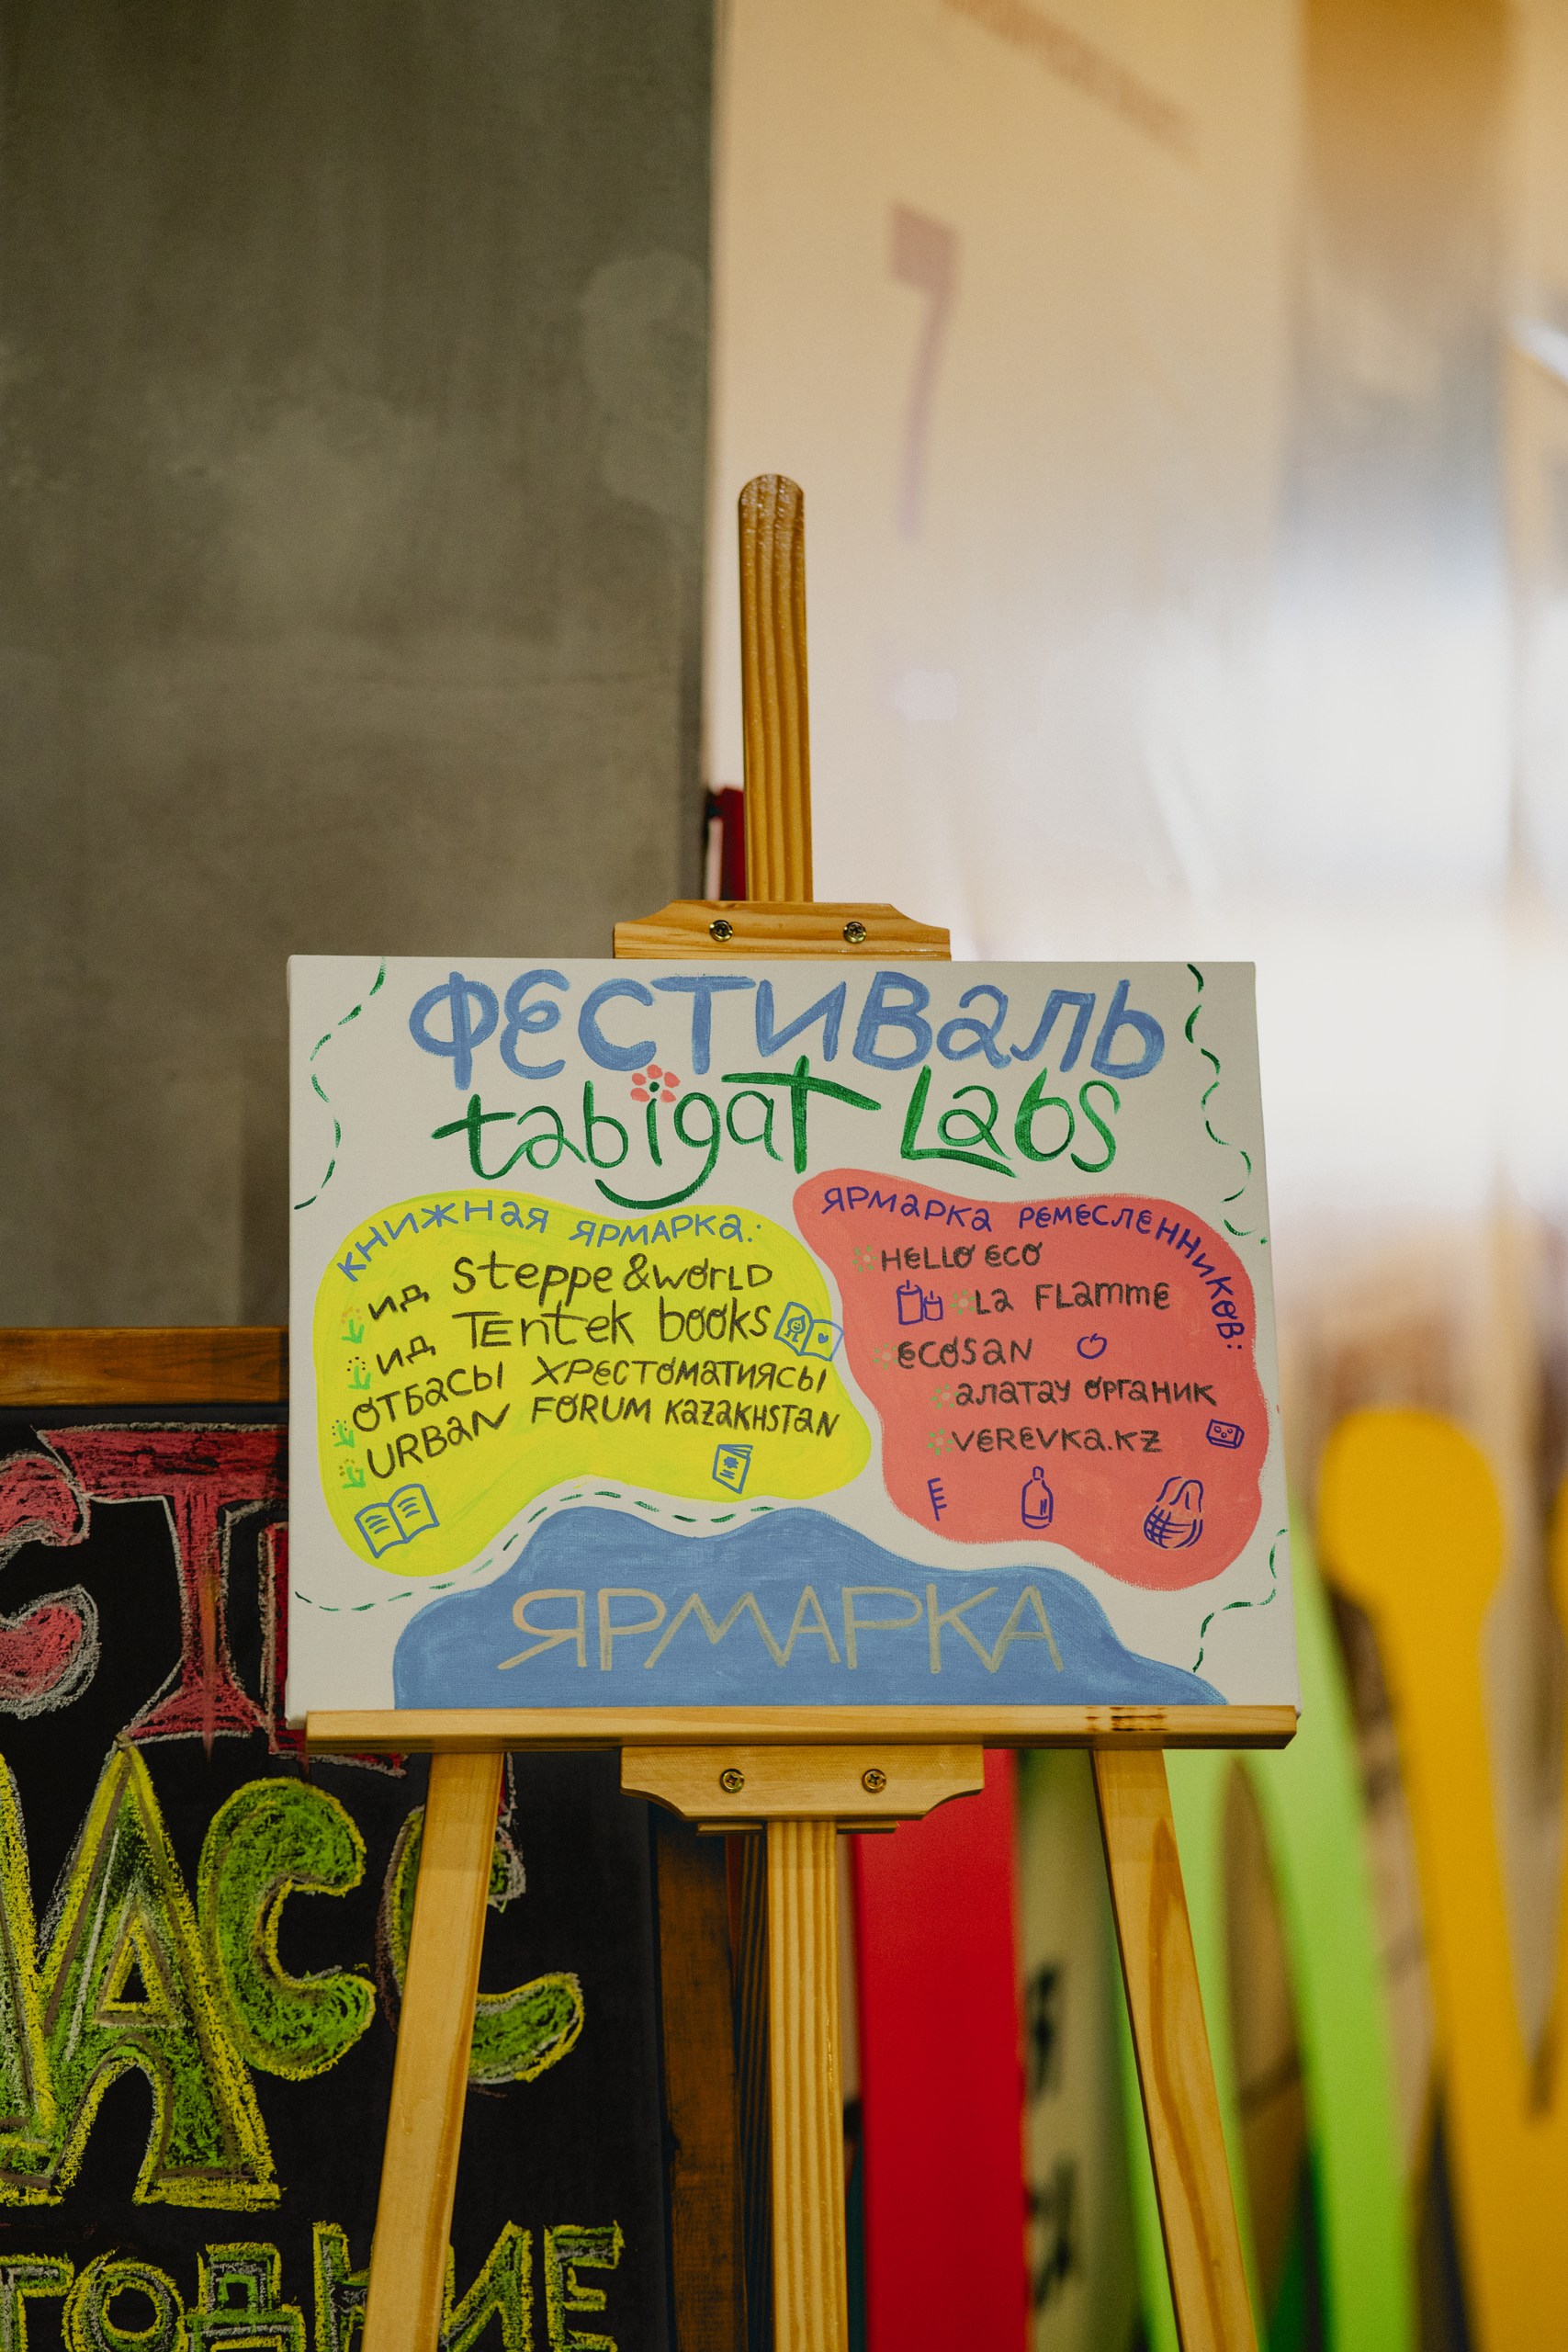 Фестиваль
tabigat Labs
Книжная ярмарка:
ИД Steppe & World
ИД Tentek books
Отбасы хрестоматиясы
Urban Forum Kazakhstan
Ярмарка ремесленников:
Hello Eco
La Flamme
Ecosan
Алатау Органик
Verevka.kz
ЯРМАРКА